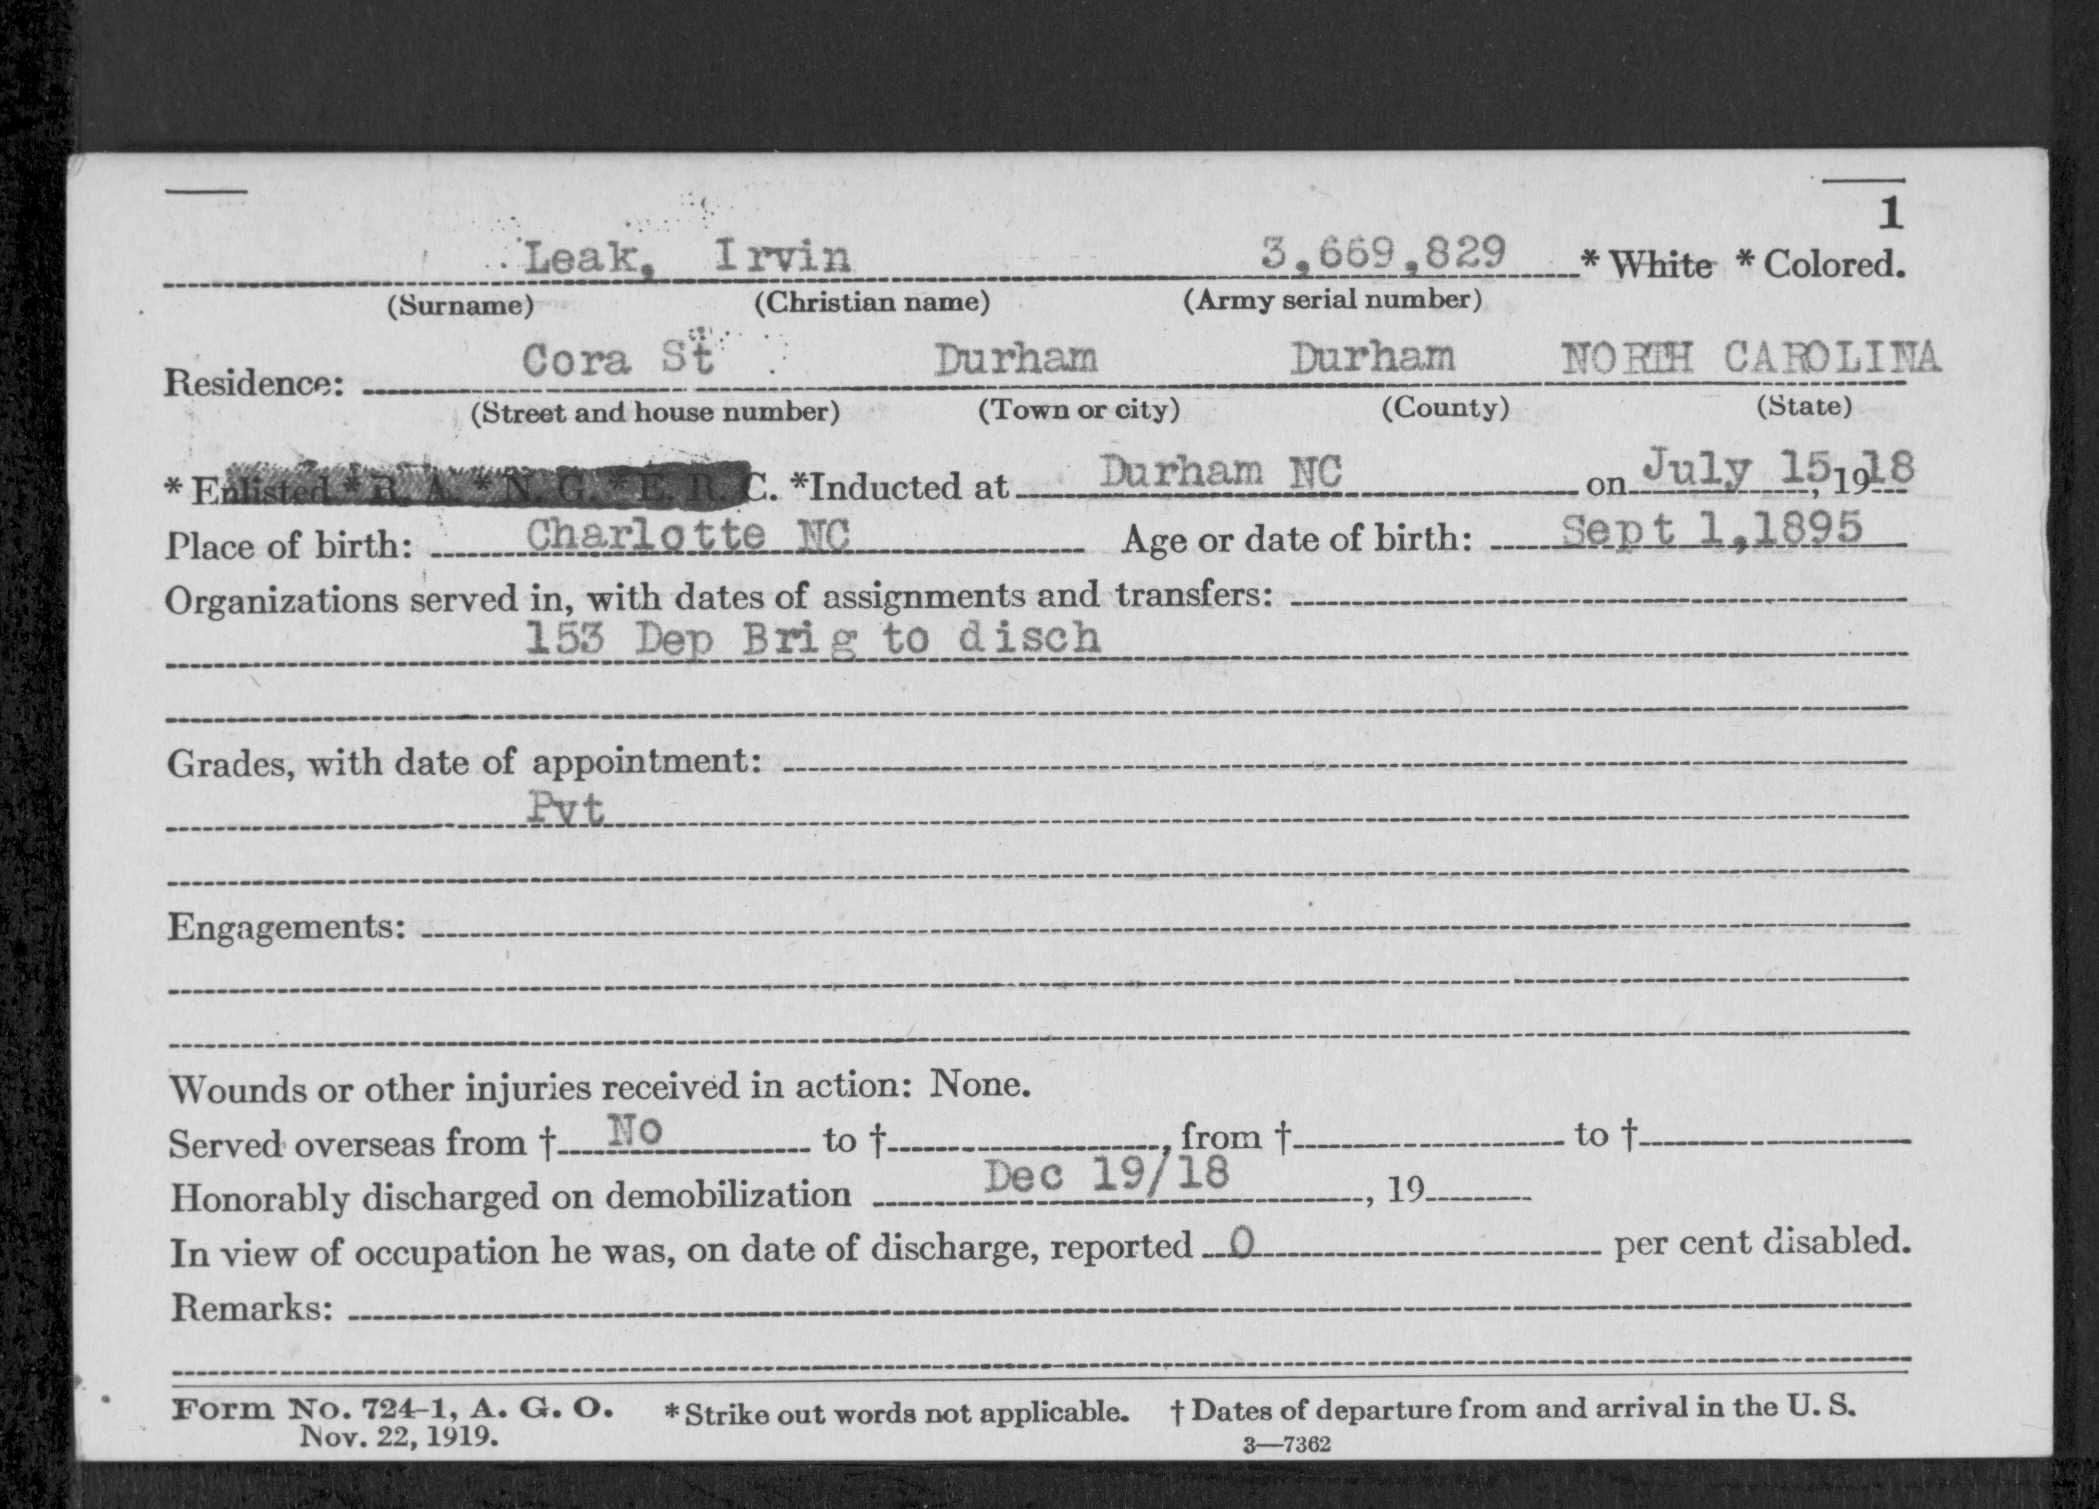 1
Leak, Irvin 3,669,829 * White * Colored.
(Surname) (Christian name) (Army serial number)
Residence: Cora St Durham Durham NORTH CAROLINA
(Street and house number) (Town or city) (County) (State)
* Enlisted * R. A. * N. G. * E. R. C. *Inducted at Durham NC on July 15, 1918
Place of birth: Charlotte NC Age or date of birth: Sept 1,1895
Organizations served in, with dates of assignments and transfers:
153 Dep Brig to disch
Grades, with date of appointment:
Pvt
Engagements:
Wounds or other injuries received in action: None.
Served overseas from † No to † , from † to †
Honorably discharged on demobilization Dec 19/18 , 19
In view of occupation he was, on date of discharge, reported 0 per cent disabled.
Remarks:
Form No. 724-1, A. G. O. * Strike out words not applicable. † Dates of departure from and arrival in the U. S.
Nov. 22, 1919. 3—7362